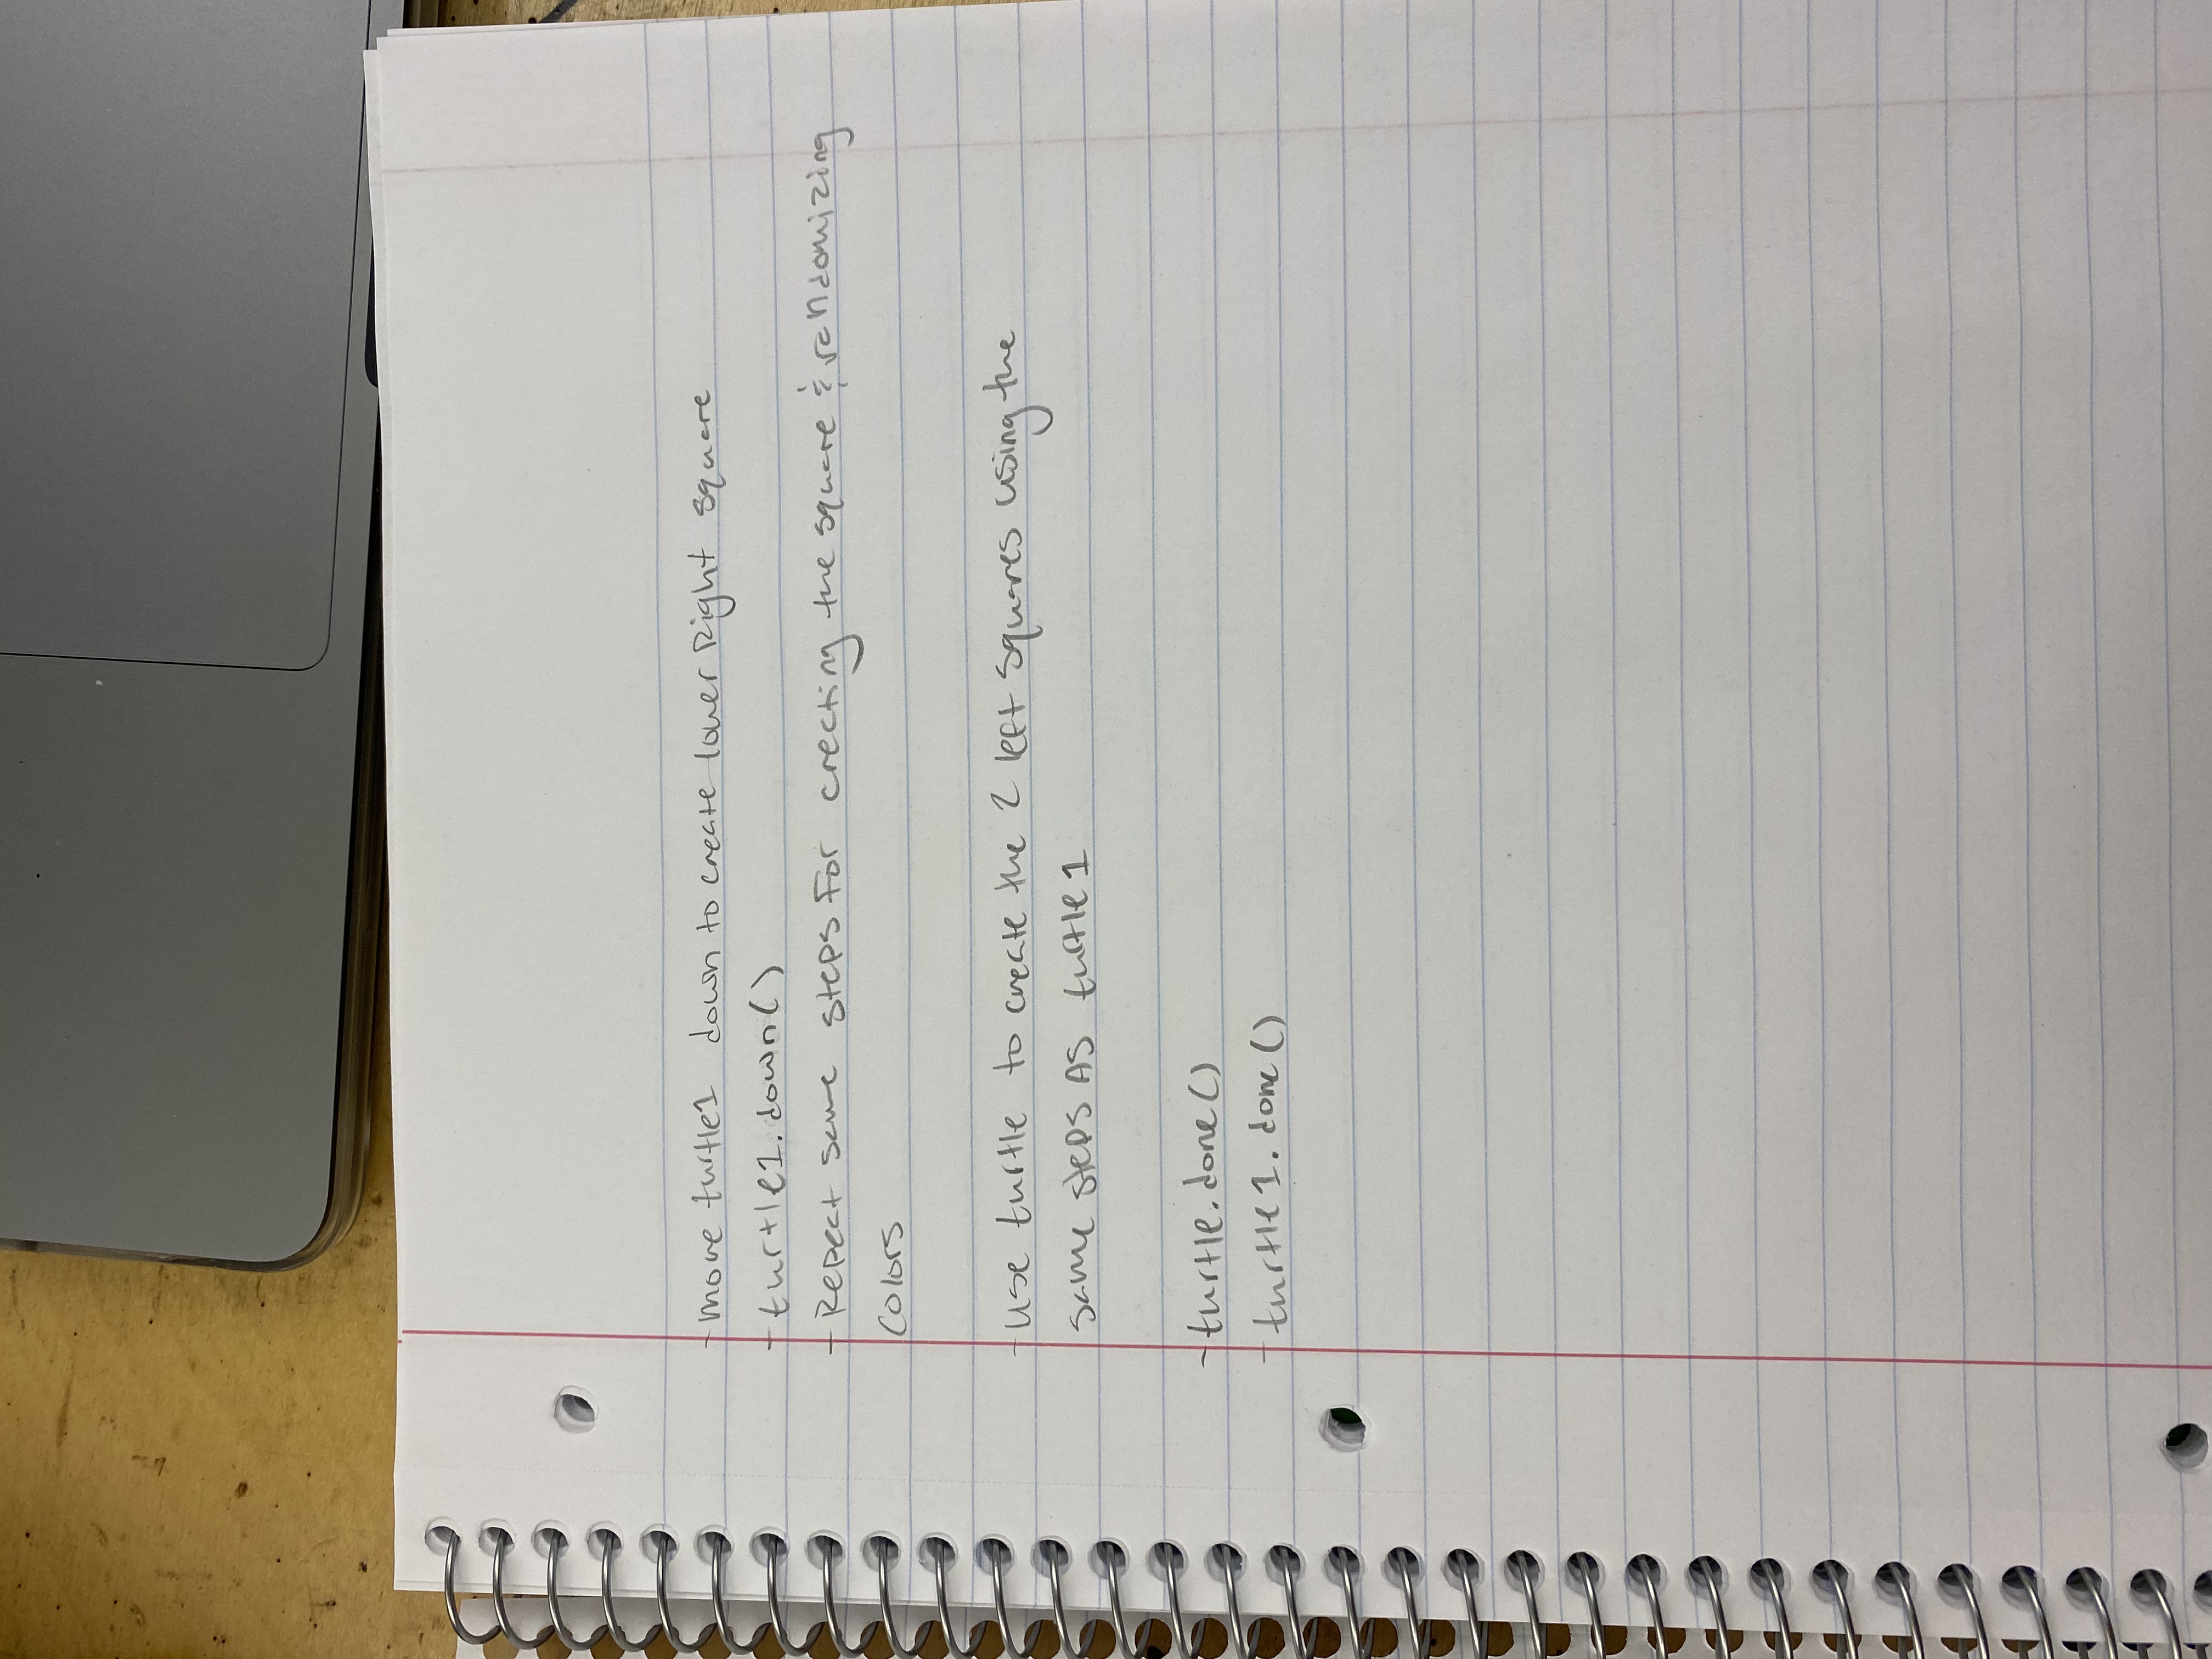 - move turtle1 down to create lower Right square
- turtle1.down()
- Repeat same steps For creating the square & randomizing
colors
- use turtle to create the 2 left squares using the
same steps AS turtle1
- turtle.done()
- turtle1.done()